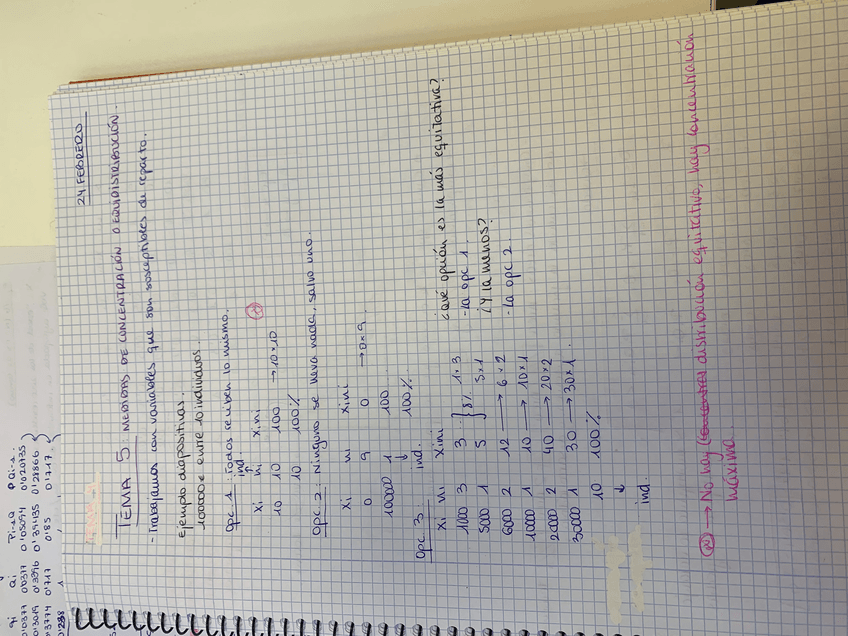 24 FEBRERO
TEMA 5: MEDIDAS DE CONCENTRACIÓN O EQUIDISTRIBUCIÓN.
- Trabajamos con variables que son susceptibles de reparto.
Ejemplo diapositivas.
100000€ entre 10 individuos.
Opc 1: Todos reciben lo mismo.
ind.
↑
xi ni xini
10 10 100 → 10×10
10 100%
Opc 2: Ninguno se lleva nada, salvo uno.
xi ni xini
0 9 0 → 0×9
100000 1 100
↓ 100%
ind.
Opc 3
xi ni xini
1000 3 3 } 8% 1×3
5000 1 5 5×1
6000 2 12 → 6×2
10000 1 10 → 10×1
20000 2 40 → 20×2
30000 1 30 → 30×1.
10 100%
↓
ind.
¿Qué opción es la más equitativa?
- La opc 1.
¿Y la menos?
- La opc 2.
→ No hay distribución equitativa, hay concentración
máxima.
qi Qi Pi-1Q PQi-1.
0'10377 0'0377 0'05094 0'020735
0'3396 0'39435 0'28866
0'3774 0'717 0'85 0'717.
1